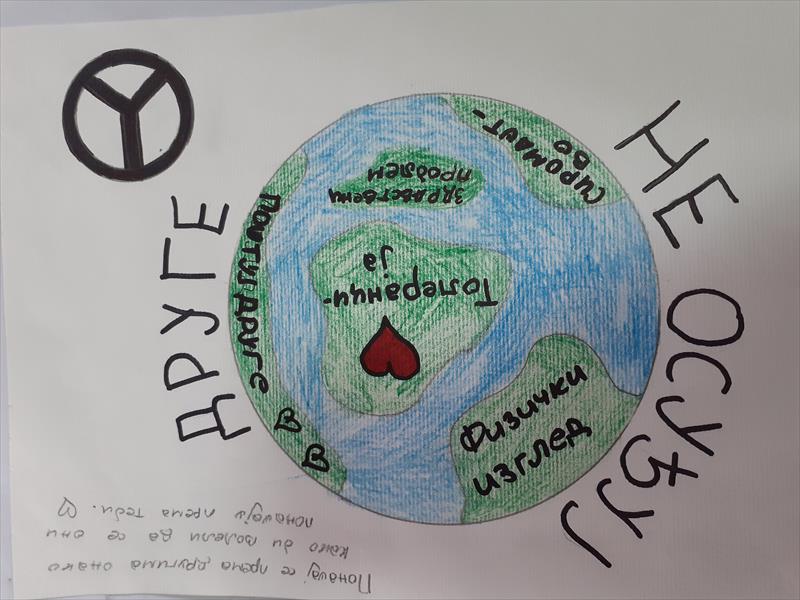 НЕ ОСУЂУЈ
ДРУГЕ
СИРОМАШТ-
ВО
ЗДРАВСТВЕНИ
ПРОБЛЕМ
Толеранци-
ја
Физички
изглед
ПОШТУЈ ДРУГЕ
Понашај се према другима онако
како би волели да се они
понашају према теби.